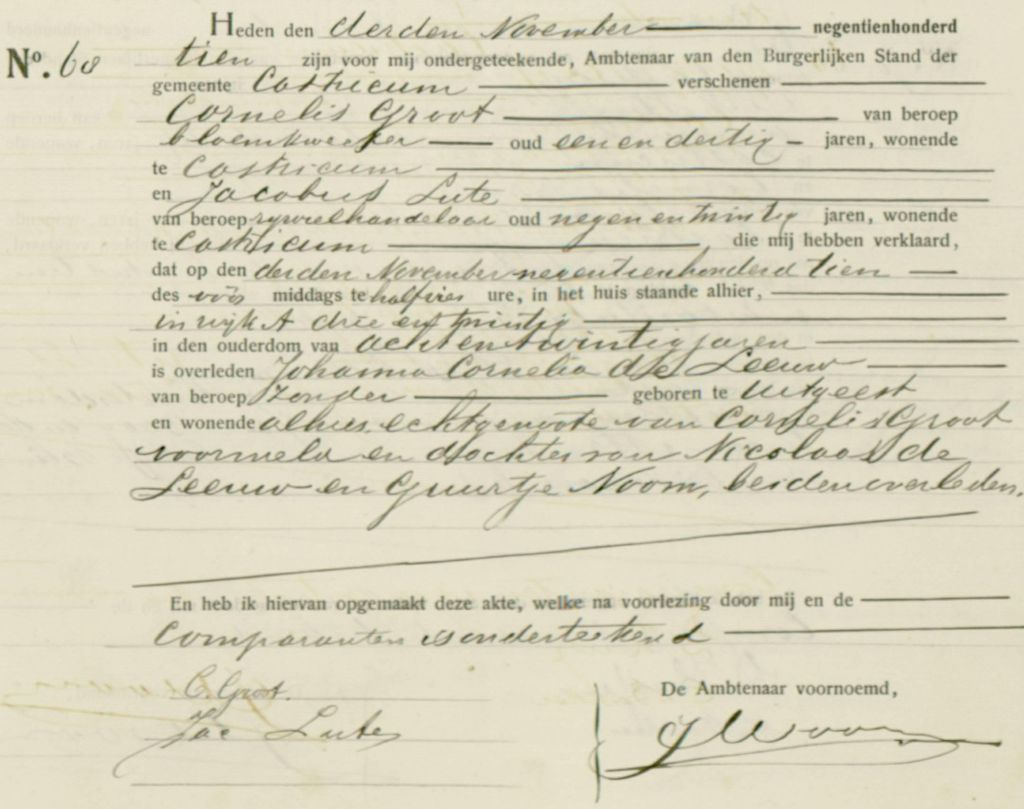 Heden den derden November negentienhonderd
No. 60 tien zijn voor mij ondergeteekende, Ambtenaar van den Burgerlijken Stand der
gemeente Castricum verschenen
Cornelis Groot van beroep
bloemkweeker oud een en dertig jaren, wonende
te Castricum
en Jacobus Lute
van beroep rijwielhandelaar oud negen en twintig jaren, wonende
te Castricum, die mij hebben verklaard,
dat op den derden November negentienhonderd tien
des vóór middags te halfvier ure, in het huis staande alhier,
in wijk A drie en twintig
in den ouderdom van acht en twintig jaren
is overleden Johanna Cornelia de Leeuw
van beroep zonder geboren te Uitgeest
en wonende alhier, echtgenoote van Cornelis Groot
voormeld en dochter van Nicolaas de
Leeuw en Guurtje Noom, beiden overleden.
En heb ik hiervan opgemaakt deze akte, welke na voorlezing door mij en de
comparanten is onderteekend
C. Groot.
De Ambtenaar voornoemd,
Jac Lute